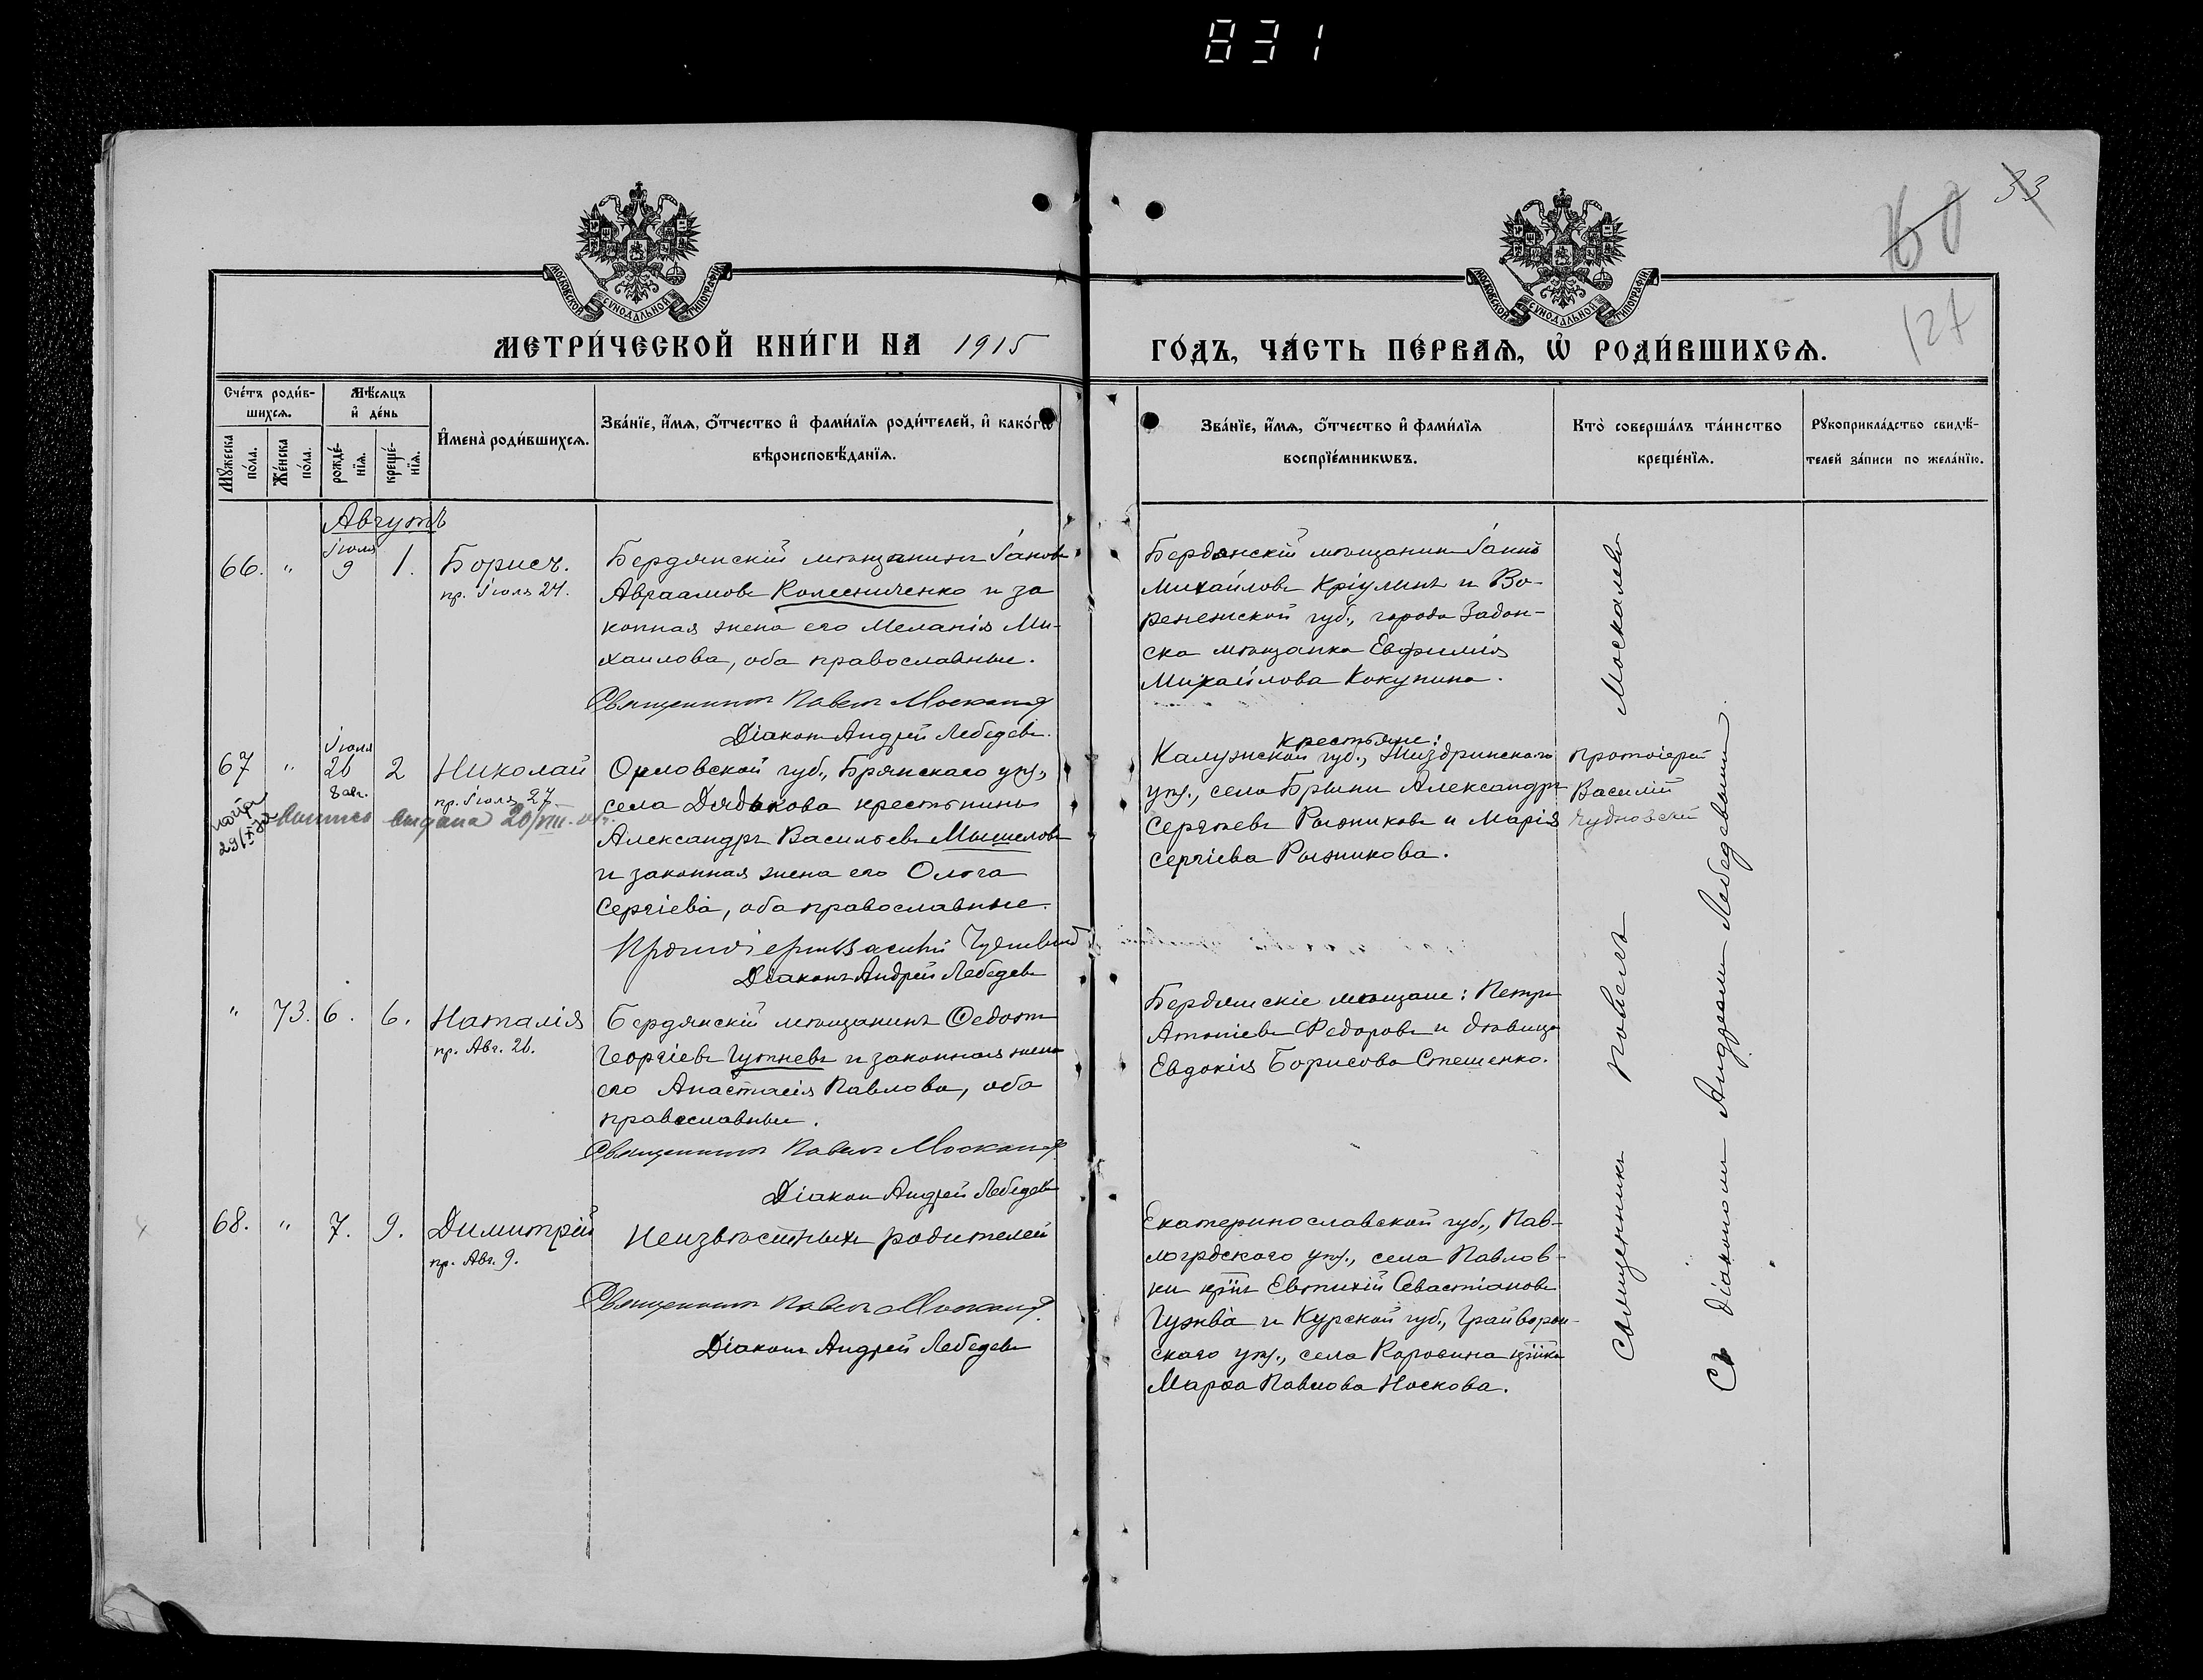 831
33
60
127
МОСКОВСКОЙ СѴНОДАЛЬНОЙ ТИПОГРАФІИ
МОСКОВСКОЙ СѴНОДАЛЬНОЙ ТИПОГРАФІИ
МЕТРИ́ЧЕСКОЙ КНИ́ГИ НА 1915
ГО́ДЪ, ЧА́СТЬ ПЕ́РВАѦ, Ѽ РОДИ́ВШИХСѦ.
Сче́тъ роди́в-
шихсѧ.
Мѣ́сѧцъ
и҆ де́нь
Мꙋ́жеска по́ла.
Же́нска по́ла.
рожде́-нїѧ.
креще́-нїѧ.
И҆мена̀ роди́вшихсѧ.
Зва́нїе, и҆́мѧ, ѻ҆́тчество и҆ фами́лїѧ роди́телей, и҆ како́гѡ
вѣроисповѣ́данїѧ.
Зва́нїе, и҆́мѧ, ѻ҆́тчество и҆ фами́лїѧ
воспрїе́мникѡвъ.
Кто̀ соверша́лъ та́инство
креще́нїѧ.
Рꙋкоприкла́дство свидѣ́-
телей за́писи по жела́нїю.
Августъ
66. " Іюля 9 1. Борисъ.
пр. Іюля 24.
Бердянскій мѣщанинъ Іаковъ
Авраамовъ Колесниченко и за
конная жена его Меланія Ми-
хаилова, оба православные.
Священникъ Павелъ Москалев
Діаконъ Андрей Лебедевъ.
Бердянскій мѣщанинъ Іаннъ
Михайловъ Кріулинъ и Во-
ронежской губ., города Задон-
ска мѣщанка Евфимія
Михайлова Кокунина.
67 " Іюля 26 2 Николай
8 авг.
пр. Іюля 27.
выдана 20/VIII
Орловской губ., Брянскаго у.,
села Дядькова крестьянинъ
Александръ Васильевъ Мышеловъ
и законная жена его Ольга
Сергіева, оба православные.
Протоіерей Василій Чудновскій
Діаконъ Андрей Лебедевъ
крестьяне:
Калужской губ., Жиздринскаго
у., села Брыни Александръ
Сергѣевъ Рыжиковъ и Марія
Сергіева Рыжикова.
Протоіерей
Василій
Чудновскій
" 73. 6. 6. Наталія
пр. Авг. 26.
Бердянскій мѣщанинъ Ѳедотъ
Георгіевъ Гутневъ и законная жена
его Анастасія Павлова, оба
православные.
Священникъ Павелъ Москалев
Діаконъ Андрей Лебедевъ
Бердянскіе мѣщане: Петръ
Антоніевъ Федоровъ и дѣвица
Евдокія Борисова Стешенко.
68. " 7. 9. Димитрій
пр. Авг. 9.
Неизвѣстныхъ родителей
Священникъ Павелъ Москалев
Діаконъ Андрей Лебедевъ
Екатеринославской губ., Пав-
лоградскаго у., села Павлов-
ки Евтихій Севастіановъ
Гужва и Курской губ., Грайворон-
скаго у., села Коровина
Марѳа Павлова Носкова.
Священникъ Павелъ Москалевъ
Съ діакономъ Андреемъ Лебедевымъ.